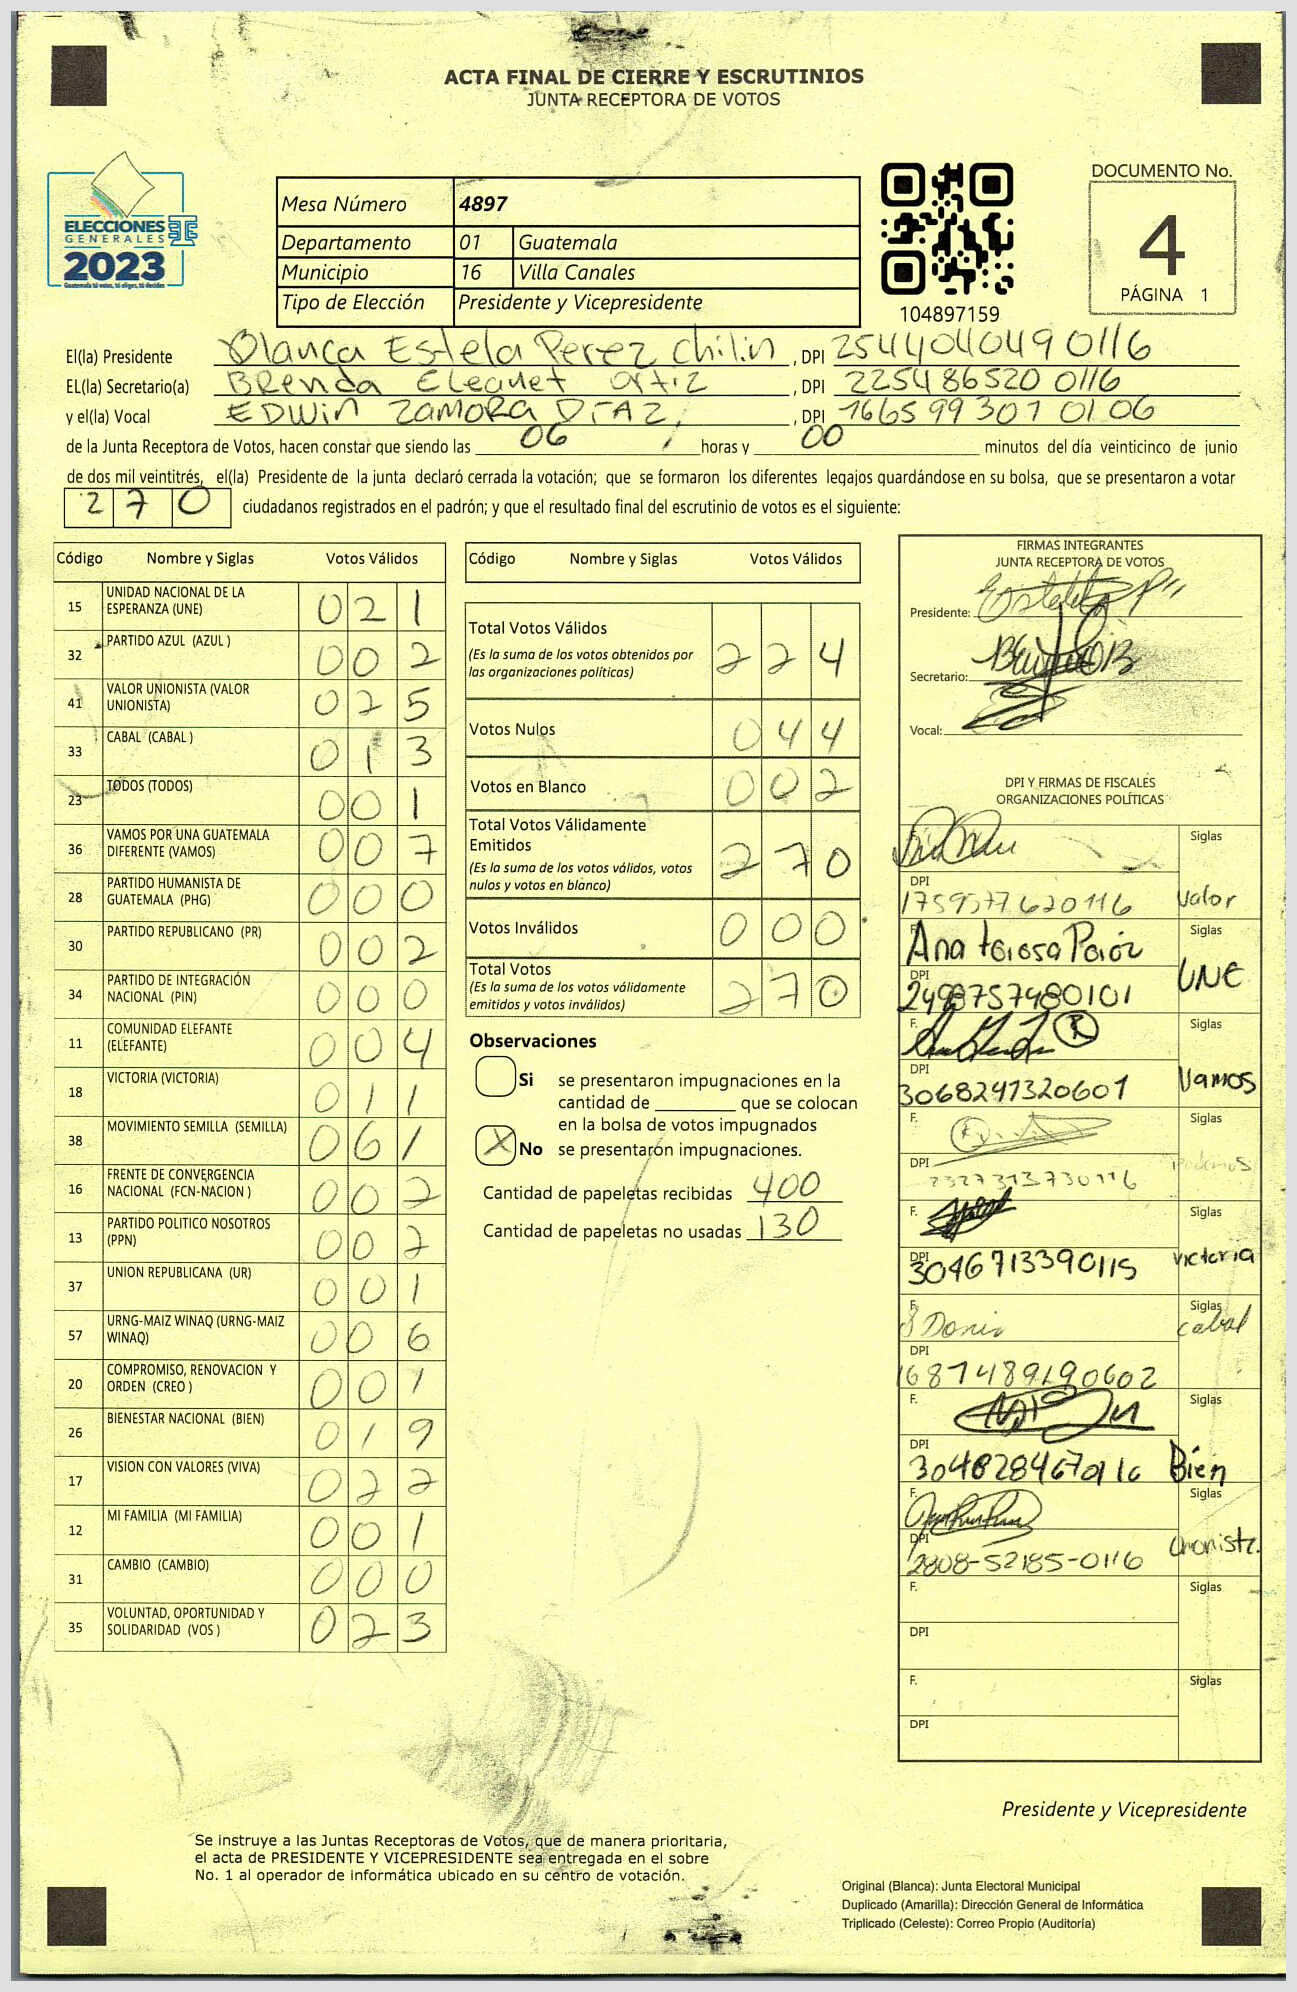 ACTA FINAL DE CIERRE Y ESCRUTINIOS
JUNTA RECEPTORA DE VOTOS
ELECCIONES
GENERALES
2023
Guatemala tú votas, tú eliges, tú decides
Mesa Número 4897
Departamento 01 Guatemala
Municipio 16 Villa Canales
Tipo de Elección Presidente y Vicepresidente
104897159
DOCUMENTO No.
4
PÁGINA 1
El(la) Presidente Blanca Estela Perez Chilin , DPI 2544040490116
EL(la) Secretario(a) Brenda Eleanet Ortiz , DPI 2254865200116
y el(la) Vocal EDWIN ZAMORA DIAZ , DPI 1665993010106
de la Junta Receptora de Votos, hacen constar que siendo las 06 horas y 00 minutos del día veinticinco de junio
de dos mil veintitrés, el(la) Presidente de la junta declaró cerrada la votación; que se formaron los diferentes legajos quardándose en su bolsa, que se presentaron a votar
270 ciudadanos registrados en el padrón; y que el resultado final del escrutinio de votos es el siguiente:
Código Nombre y Siglas Votos Válidos
15 UNIDAD NACIONAL DE LA ESPERANZA (UNE) 021
32 PARTIDO AZUL (AZUL ) 002
41 VALOR UNIONISTA (VALOR UNIONISTA) 025
33 CABAL (CABAL ) 013
23 TODOS (TODOS) 001
36 VAMOS POR UNA GUATEMALA DIFERENTE (VAMOS) 007
28 PARTIDO HUMANISTA DE GUATEMALA (PHG) 000
30 PARTIDO REPUBLICANO (PR) 002
34 PARTIDO DE INTEGRACIÓN NACIONAL (PIN) 000
11 COMUNIDAD ELEFANTE (ELEFANTE) 004
18 VICTORIA (VICTORIA) 011
38 MOVIMIENTO SEMILLA (SEMILLA) 061
16 FRENTE DE CONVERGENCIA NACIONAL (FCN-NACION ) 002
13 PARTIDO POLITICO NOSOTROS (PPN) 002
37 UNION REPUBLICANA (UR) 001
57 URNG-MAIZ WINAQ (URNG-MAIZ WINAQ) 006
20 COMPROMISO, RENOVACION Y ORDEN (CREO ) 001
26 BIENESTAR NACIONAL (BIEN) 019
17 VISION CON VALORES (VIVA) 022
12 MI FAMILIA (MI FAMILIA) 001
31 CAMBIO (CAMBIO) 000
35 VOLUNTAD, OPORTUNIDAD Y SOLIDARIDAD (VOS ) 023
Código Nombre y Siglas Votos Válidos
Total Votos Válidos 224
(Es la suma de los votos obtenidos por
las organizaciones políticas)
Votos Nulos 044
Votos en Blanco 002
Total Votos Válidamente
Emitidos 270
(Es la suma de los votos válidos, votos
nulos y votos en blanco)
Votos Inválidos 000
Total Votos 270
(Es la suma de los votos válidamente
emitidos y votos inválidos)
Observaciones
Si se presentaron impugnaciones en la
cantidad de ________ que se colocan
en la bolsa de votos impugnados
X No se presentaron impugnaciones.
Cantidad de papeletas recibidas 400
Cantidad de papeletas no usadas 130
FIRMAS INTEGRANTES
JUNTA RECEPTORA DE VOTOS
Presidente:
Secretario:
Vocal:
DPI Y FIRMAS DE FISCALES
ORGANIZACIONES POLÍTICAS
F. Siglas
DPI
Valor
F. Ana Teresa Siglas
DPI 2498757480101 UNE
F. Siglas
DPI 3068241320601 Vamos
F. Siglas
DPI 2327313730116 Podemos
F. Siglas
DPI 3046713390115 victoria
F. Siglas
cabal
DPI 1687489190602
F. Siglas
DPI 3048284670116 Bien
F. Siglas
DPI 2808-52185-0116 Unionista.
F. Siglas
DPI
F. Siglas
DPI
Presidente y Vicepresidente
Se instruye a las Juntas Receptoras de Votos, que de manera prioritaria,
el acta de PRESIDENTE Y VICEPRESIDENTE sea entregada en el sobre
No. 1 al operador de informática ubicado en su centro de votación.
Original (Blanca): Junta Electoral Municipal
Duplicado (Amarilla): Dirección General de Informática
Triplicado (Celeste): Correo Propio (Auditoría)